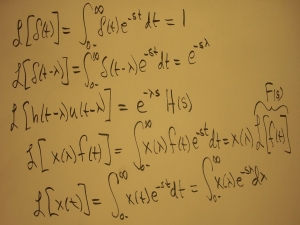 ℒ[δ(t)] = ∫₀₋^∞ δ(t)e^{-st}dt = 1
ℒ[δ(t-λ)] = ∫₀₋^∞ δ(t-λ)e^{-st}dt = e^{-sλ}
ℒ[h(t-λ)u(t-λ)] = e^{-λs} H(s)
F(s)
ℒ[x(λ)f(t)] = ∫₀₋^∞ x(λ)f(t)e^{-st}dt = x(λ) ℒ[f(t)]
ℒ[x(t)] = ∫₀₋^∞ x(t)e^{-st}dt = ∫₀₋^∞ x(λ)e^{-sλ}dλ